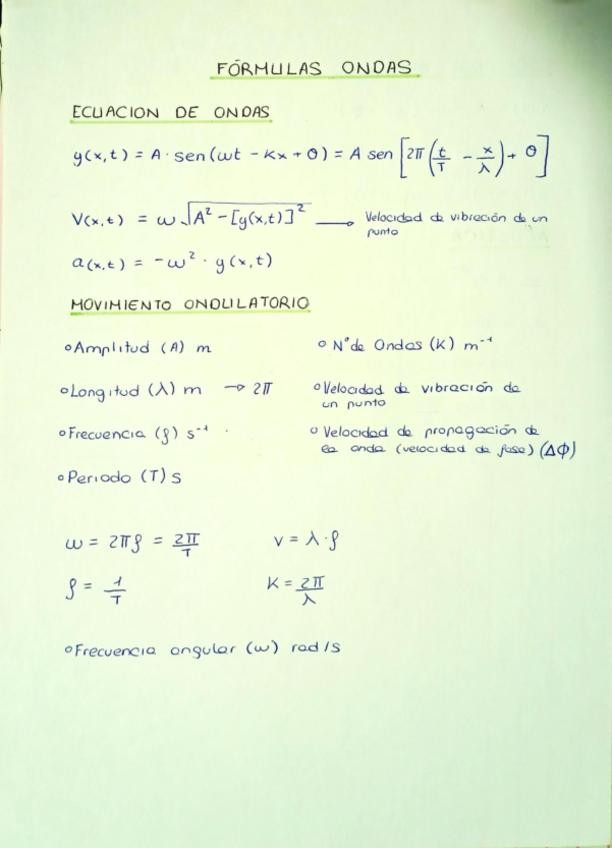 FÓRMULAS ONDAS
ECUACION DE ONDAS
y(x,t) = A · sen(ωt - Kx + θ) = A sen [2π (t/T - x/λ) + θ]
V(x,t) = ω √A² - [y(x,t)]² → Velocidad de vibración de un
punto
a(x,t) = -ω² · y(x,t)
MOVIMIENTO ONDULATORIO
° Amplitud (A) m
° Longitud (λ) m → 2π
° Frecuencia (f) s⁻¹
° Periodo (T) s
° Nº de Ondas (K) m⁻¹
° Velocidad de vibración de
un punto
° Velocidad de propagación de
la onda (velocidad de fase) (ΔΦ)
ω = 2πf = 2π/T
V = λ · f
f = 1/T
K = 2π/λ
° Frecuencia angular (ω) rad/s